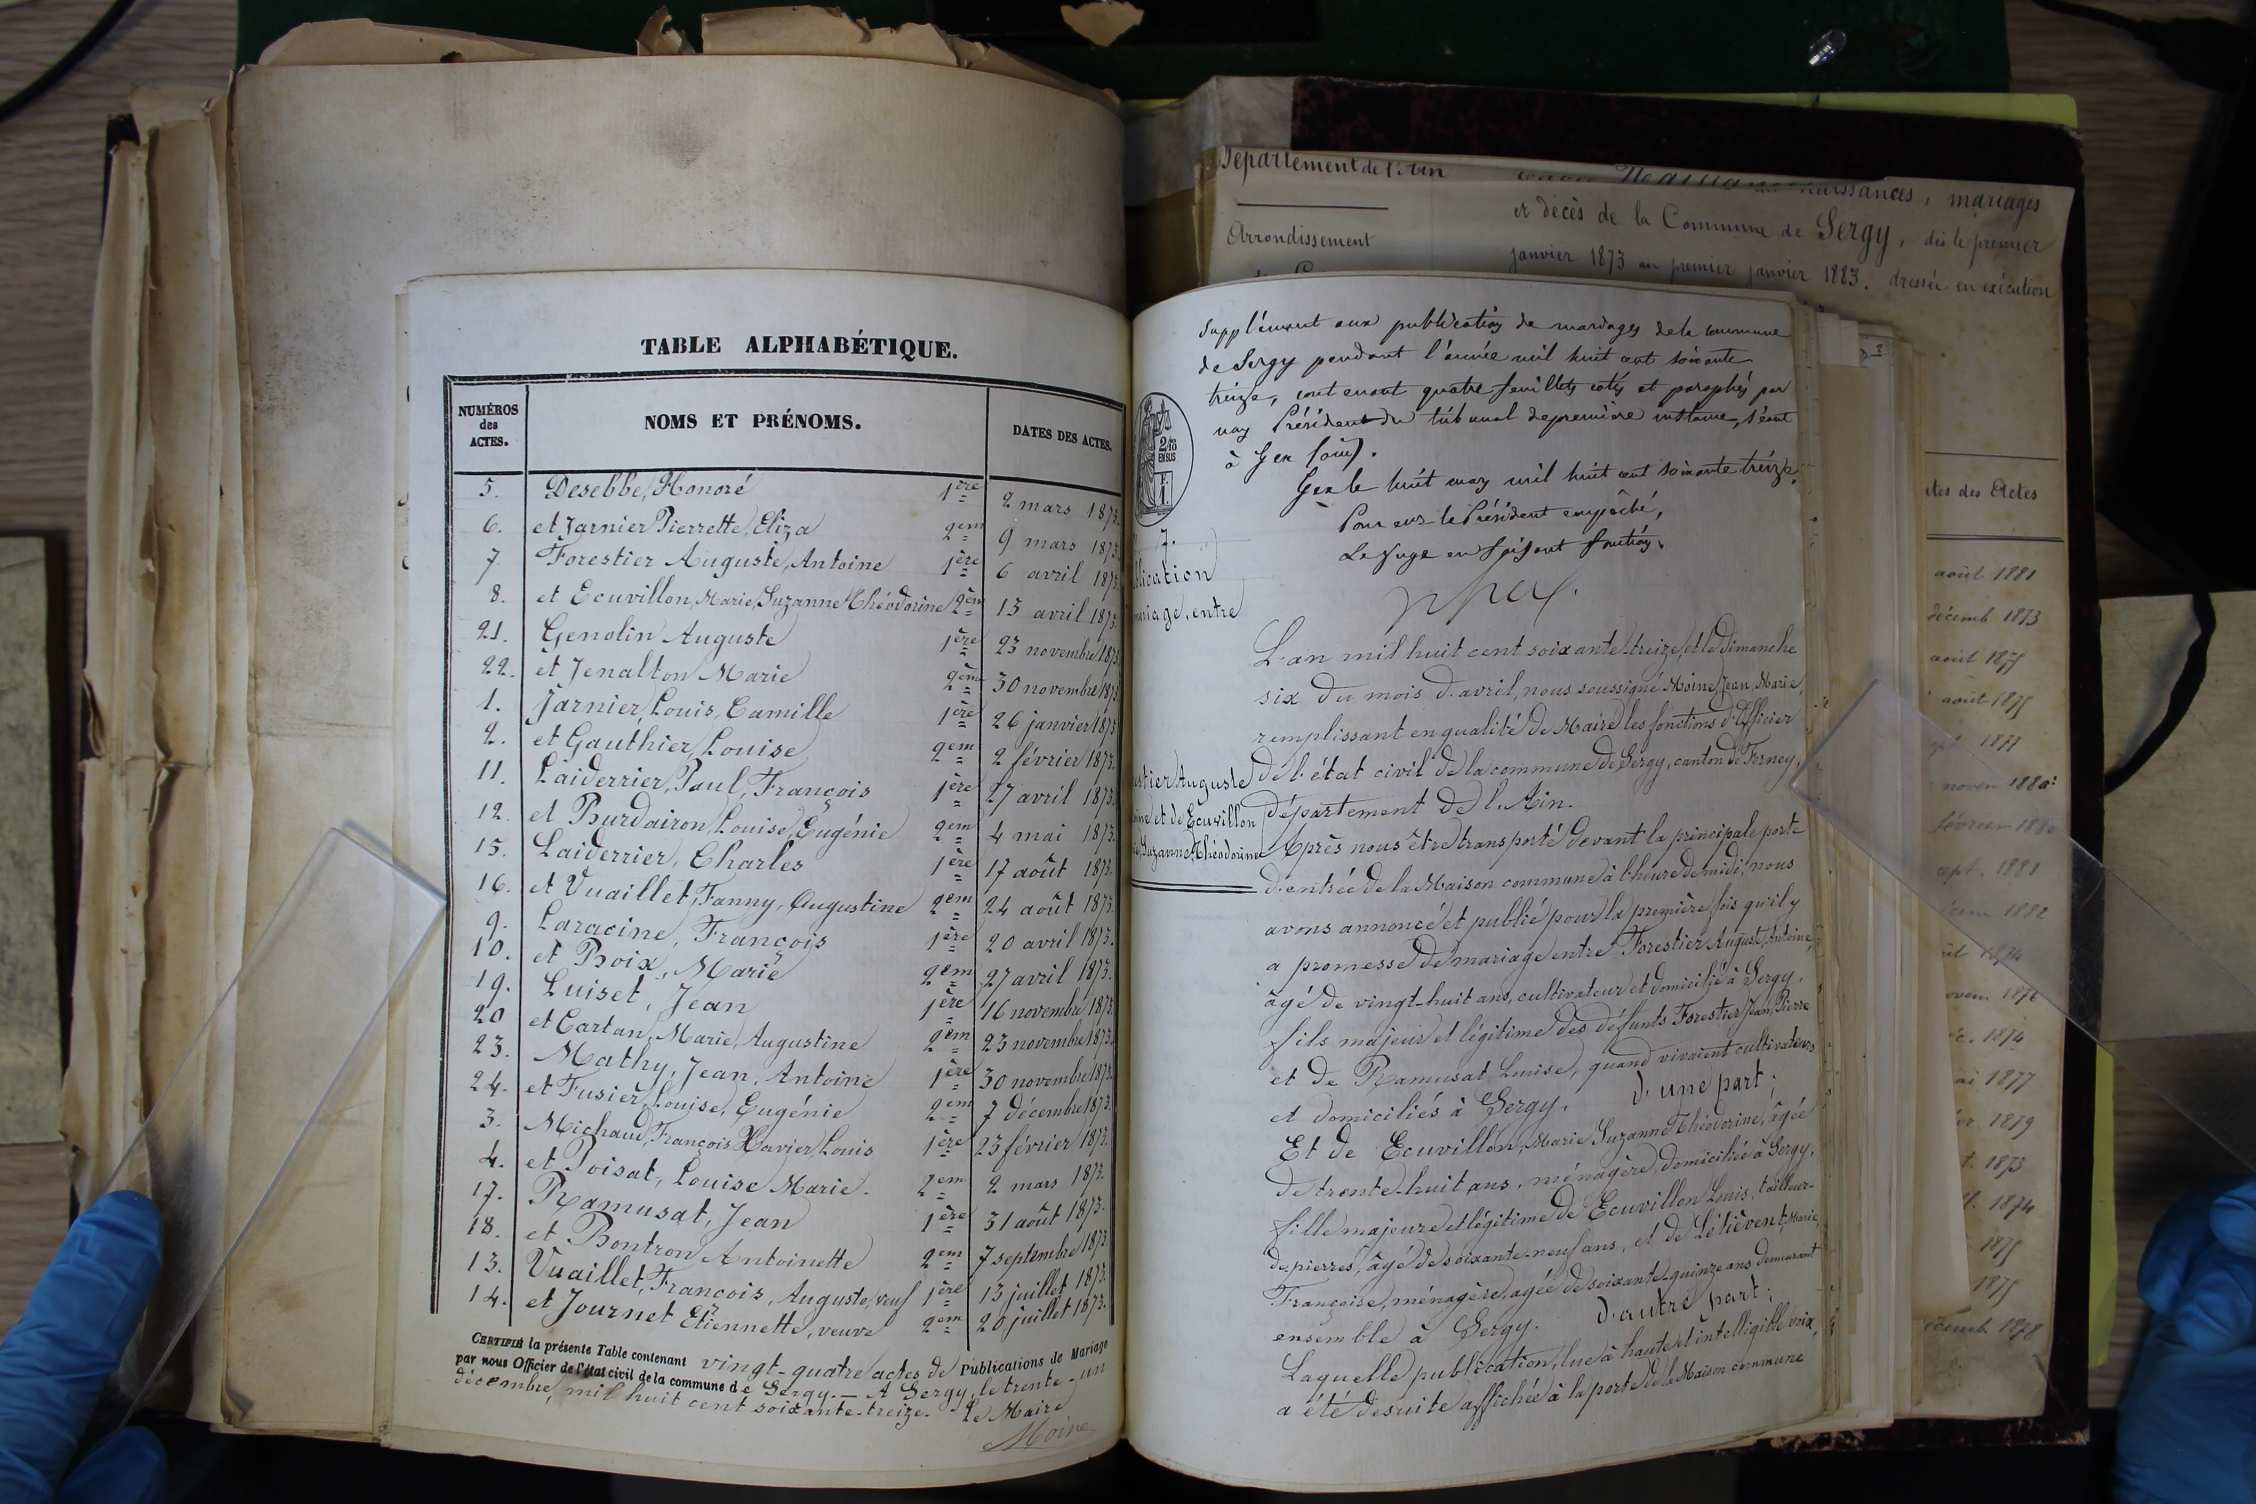 TABLE ALPHABÉTIQUE.
NUMÉROS des ACTES.
NOMS ET PRÉNOMS.
DATES DES ACTES.
5. Desebbe, Honoré 1ère 2 mars 1873.
6. et Jarnier Pierrette, Eliza 2em 9 mars 1873.
7 Forestier Auguste, Antoine 1ère 6 avril 1873.
8. et Ecuvillon, Marie, Suzanne Théodorine 2em 13 avril 1873.
21. Genolin Auguste 1ère 23 novembre 1873
22. et Jenalton Marie 2em 30 novembre 1873
1. Jarnier, Louis, Camille 1ère 26 janvier 1873
2. et Gauthier, Louise 2em 2 février 1873.
11. Laiderrier, Paul, François 1ère 27 avril 1873.
12. et Burdairon, Louise, Eugénie 2em 4 mai 1873.
15. Laiderrier, Charles 1ère 17 août 1873.
16. et Vuaillet, Fanny, Augustine 2em 24 août 1873.
9. Laracine, François 1ère 20 avril 1873.
10. et Boix, Marie 2em 27 avril 1873.
19. Luiset, Jean 1ère 16 novembre 1873.
20 et Cartan, Marie, Augustine 2em 23 novembre 1873.
23. Mathy, Jean, Antoine 1ère 30 novembre 1873.
24. et Fusier, Louise, Eugénie 2em 7 décembre 1873.
3. Michaud, François Xavier, Louis 1ère 23 février 1873.
4. et Poisat, Louise Marie. 2em 2 mars 1873.
17. Ramusat, Jean 1ère 31 août 1873.
18. et Bontron Antoinette 2em 7 septembre 1873
13. Vuaillet, François, Auguste, veuf 1ère 13 juillet 1873.
14. et Journet Etiennette, veuve 2em 20 juillet 1873.
CERTIFIÉ la présente Table contenant vingt-quatre actes de Publications de Mariage
par nous Officier de l'état civil de la commune de Sergy. — A Sergy, le trente-un
décembre, mil huit cent soixante-treize. Le Maire
Moine
Département de l'Ain
naissances, mariages
et décès de la Commune de Sergy, dès le premier
Arrondissement
janvier 1873 au premier janvier 1883. dressée en exécution
Supplément aux publications de mariages de la commune
de Sergy pendant l'année mil huit cent soixante
treize, contenant quatre feuillets cotés et paraphés par
nous Président du tribunal de première instance, séant
à Gex (ain).
Gex le huit mars mil huit cent soixante treize,
Pour le Président empêché,
Le Juge en faisant fonction.
2/10
EN SUS
7.
blication
mariage, entre
L'an mil huit cent soixante-treize, et le dimanche
six du mois d'avril, nous soussigné Moine, Jean, Marie,
remplissant en qualité de Maire les fonctions d'Officier
de l'état civil de la commune de Sergy, canton de Ferney,
département de l'Ain.
estier Auguste
oine et de Ecuvillon
Suzanne, Théodorine
Après nous être transporté devant la principale porte
d'entrée de la Maison commune à l'heure de midi, nous
avons annoncé et publié pour la première fois qu'il y
a promesse de mariage entre Forestier August, Antoine,
âgé de vingt-huit ans, cultivateur et domicilié à Sergy,
fils majeur et légitime des défunts Forestier, Jean, Pierre
et de Ramusat Louise, quand vivaient cultivateurs
et domiciliés à Sergy. d'une part;
Et de Ecuvillon, Marie Suzanne Théodorine, âgée
de trente-huit ans, ménagère, domiciliée à Sergy,
fille majeure et légitime de Ecuvillon Louis, tailleur
de pierres, âgé de soixante-neuf ans, et de Lélièvent, Marie
Françoise, ménagère, agée de soixante-quinze ans demeurant
ensemble à Sergy. d'autre part;
Laquelle publication, lue à haute et intelligible voix,
a été de suite affichée à la porte de la Maison commune
tes des Actes
août 1881
décemb 1873
août 1875
août 1875
1877
noven 1880
février
sept. 1881
1882
1874
novem 1876
1874
1877
1879
1873
1874
1875
1875
décemb 1878